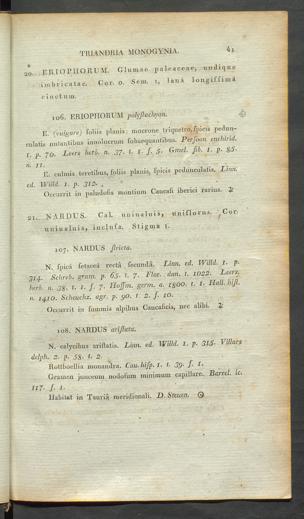 TRIANDRIA MONOGYNIA. 41
20. ERIOPHORUM. Glumae paleaceae, undique
imbricatae. Cor. 0. Sem. 1, lanâ longiſſimâ
cinctum.
106. ERIOPHORUM polyſtachyon.
E. (vulgare) foliis planis: mucrone triquetro, ſpicis pedun-
culatis nutantibus involucrum ſubaequantibus. Perſoon enchirid.
1. p. 70. Leers herb. n. 37. t. 1. f. 5. Gmel. ſib. 1. p. 85.
n. 11.
E. culmis teretibus, foliis planis, ſpicis pedunculatis. Linn.
ed. Willd. 1. p. 312.
Occurrit in paludoſis montium Caucaſi iberici rarius. ♃
21. NARDUS. Cal. univalvis, uniflorus. Cor.
univalvis, incluſa. Stigma 1.
107. NARDUS ſtricta.
N. ſpicâ ſetaceâ rectâ ſecundâ. Linn. ed. Willd. 1. p.
314. Schreb. gram. p. 65. t. 7. Flor. dan. t. 1022. Leers.
herb. n. 38. t. 1. f. 7. Hoffm. germ. a. 1800. t. 1. Hall. hiſt.
n. 1410. Scheuchz. agr. p. 90. t. 2. f. 10.
Occurrit in ſummis alpibus Caucaſicis, nec alibi. ♃
108. NARDUS ariſtata.
N. calycibus ariſtatis. Linn. ed. Willd. 1. p. 315. Villars
delph. 2. p. 58. t. 2.
Rottboellia monandra. Cav. hiſp. 1. t. 39. f. 1.
Gramen junceum nodoſum minimum capillare. Barrel. ic.
117. f. 1.
Habitat in Tauriâ meridionali. D. Steven. ☉